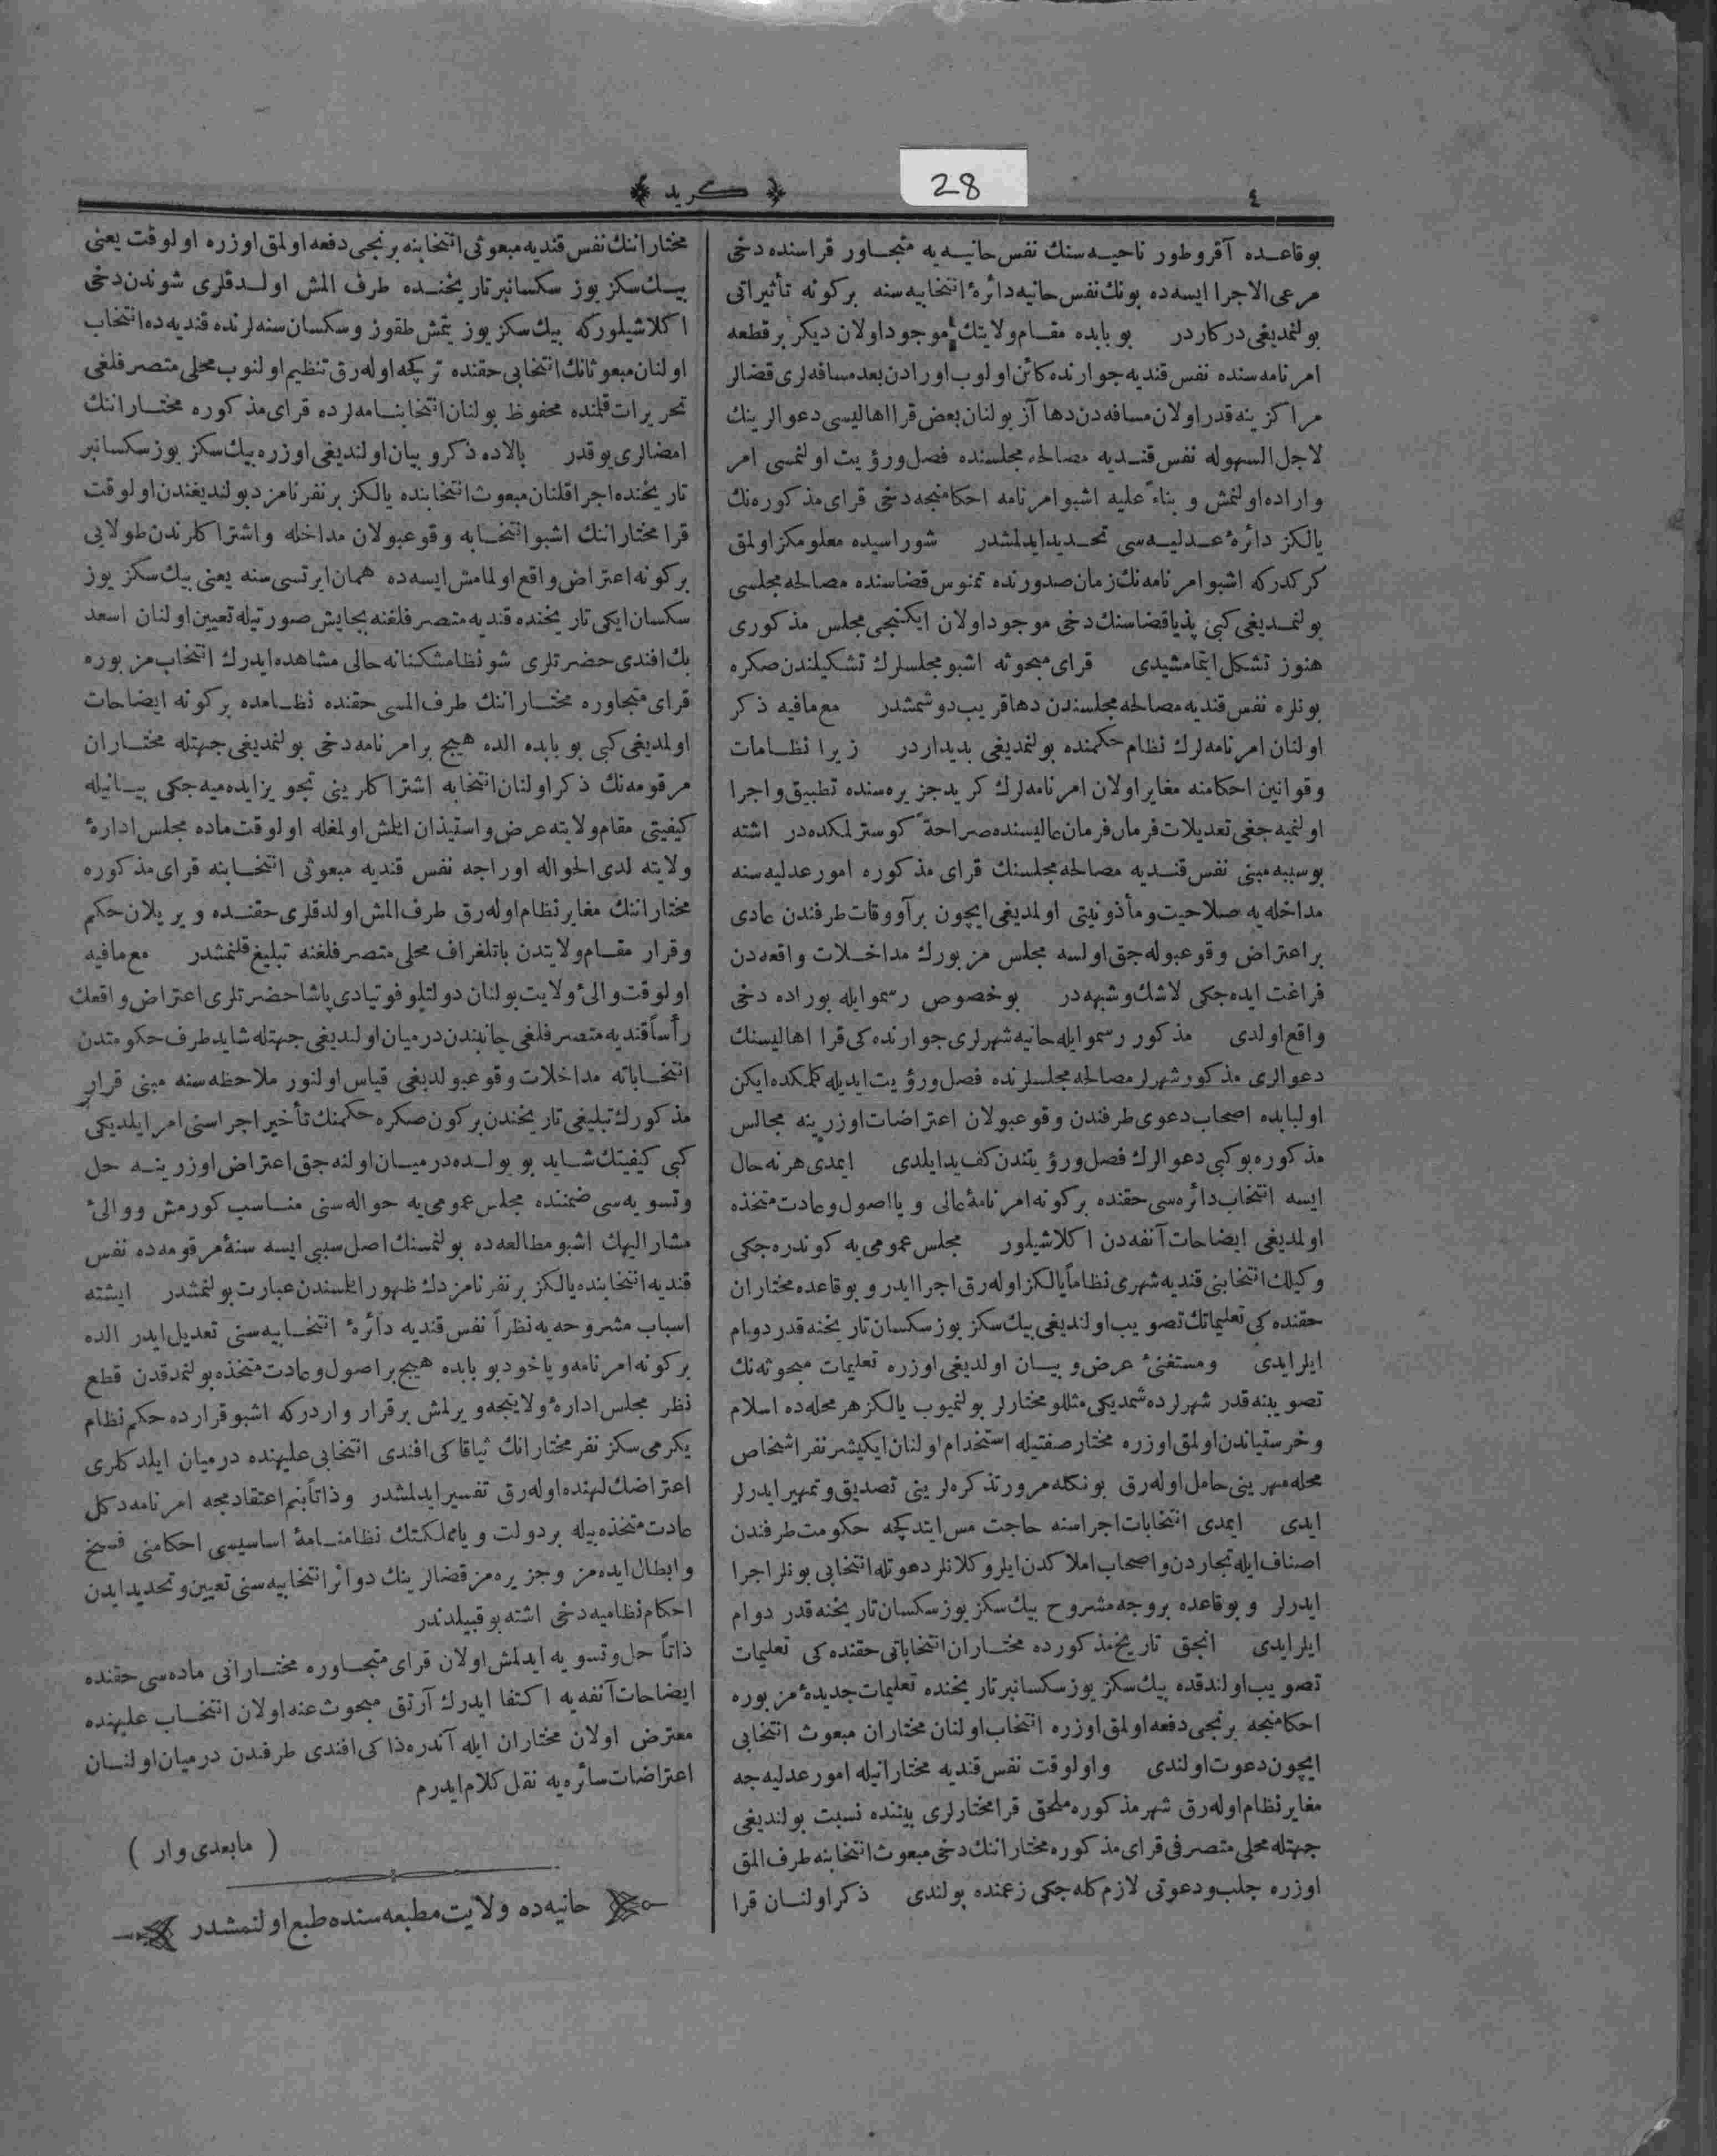 28
٤
﴿ كريد ﴾
بو قاعده آقروطور ناحيه سنك نفس حانيه يه متجاور قراسنده دخى
مرعى الاجرا ايسه ده بونك نفس حانيه دائرۀ انتخابيه سنه بركونه تأثيراتى
بولنمديغى دركاردر بو بابده مقام ولايتك موجود اولان ديكر بر قطعه
امرنامه سنده نفس قنديه جوارنده كائن اولوب اورادن بعد مسافه لرى قضالر
مراكزينه قدر اولان مسافه دن دها آز بولنان بعض قرا اهاليسى دعوالرينك
لاجل السهوله نفس قنديه مصالحه مجلسنده فصل ورؤيت اولنمسى امر
واراده اولنمش و بناءً عليه اشبو امرنامه احكامنجه دخى قراى مذكوره نك
يالكز دائرۀ عدليه سى تحديد ايدلمشدر شوراسيده معلومكز اولمق
كركدركه اشبو امرنامه نك زمان صدورنده تمنوس قضاسنده مصالحه مجلسى
بولنمديغى كبى پذيا قضاسنك دخى موجود اولان ايكنجى مجلس مذكورى
هنوز تشكل ايتمامشيدى قراى مبحوثه اشبو مجلسلرك تشكيلندن صكره
بونلره نفس قنديه مصالحه مجلسندن دها قريب دوشمشدر مع مافيه ذكر
اولنان امرنامه لرك نظام حكمنده بولنمديغى بديداردر زيرا نظامات
وقوانين احكامنه مغاير اولان امرنامه لرك كريد جزيره سنده تطبيق واجرا
اولنميه جغى تعديلات فرمان فرمان عاليسنده صراحةً كوسترلمكده در اشته
بوسببه مبنى نفس قنديه مصالحه مجلسنك قراى مذكوره امور عدليه سنه
مداخله يه صلاحيت ومأذونيتى اولمديغى ايچون برآووقات طرفندن عادى
بر اعتراض وقوعبوله جق اولسه مجلس مزبورك مداخلات واقعه دن
فراغت ايده جكى لاشك وشبهه در بوخصوص رسمو ايله بوراده دخى
واقع اولدى مذكور رسمو ايله حانيه شهرلرى جوارنده كى قرا اهاليسنك
دعوالرى مذكور شهرلر مصالحه مجلسلرنده فصل ورؤيت ايديله كلمكده ايكن
اولبابده اصحاب دعوى طرفندن وقوعبولان اعتراضات اوزرينه مجالس
مذكوره بو كبى دعوالرك فصل ورؤيتندن كف يد ايلدى ايمدى هر نه حال
ايسه انتخاب دائره سى حقنده بركونه امرنامۀ عالى و يا اصول وعادت متخذه
اولمديغى ايضاحات آنفه دن اكلاشيلور مجلس عمومى يه كوندره جكى
وكيلك انتخابنى قنديه شهرى نظاماً يالكز اوله رق اجرا ايدر و بو قاعده مختاران
حقنده كى تعليماتك تصويب اولنديغى بيك سكز يوز سكسان تاريخنه قدر دوام
ايلر ايدى ومستغنئ عرض و بيان اولديغى اوزره تعليمات مبحوثه نك
تصويبنه قدر شهرلرده شمديكى مثللو مختارلر بولنميوب يالكز هر محله ده اسلام
وخرستياندن اولمق اوزره مختار صفتيله استخدام اولنان ايكيشر نفر اشخاص
محله مهرينى حامل اوله رق بونكله مرور تذكره لرينى تصديق وتمهير ايدرلر
ايدى ايمدى انتخابات اجراسنه حاجت مس ايتدكجه حكومت طرفندن
اصناف ايله تجاردن واصحاب املاكدن ايلرو كلانلر دعوتله انتخابى بونلر اجرا
ايدرلر و بو قاعده بروجه مشروح بيك سكز يوز سكسان تاريخنه قدر دوام
ايلر ايدى انجق تاريخ مذكورده مختاران انتخاباتى حقنده كى تعليمات
تصويب اولندقده بيك سكز يوز سكسانبر تاريخنده تعليمات جديدۀ مزبوره
احكامنجه برنجى دفعه اولمق اوزره انتخاب اولنان مختاران مبعوث انتخابى
ايچون دعوت اولندى واولوقت نفس قنديه مختارانيله امور عدليه جه
مغاير نظام اوله رق شهر مذكوره ملحق قرا مختارلرى بيننده نسبت بولنديغى
جهتله محلى متصرفى قراى مذكوره مختاراننك دخى مبعوث انتخابنه طرف المق
اوزره جلب ودعوتى لازم كله جكى زعمنده بولندى ذكر اولنان قرا
مختاراننك نفس قنديه مبعوثى انتخابنه برنجى دفعه اولمق اوزره اولوقت يعنى
بيك سكز يوز سكسانبر تاريخنده طرف المش اولدقلرى شوندن دخى
اكلاشيلوركه بيك سكز يوز يتمش طقوز وسكسان سنه لرنده قنديه ده انتخاب
اولنان مبعوثانك انتخابى حقنده تركجه اوله رق تنظيم اولنوب محلى متصرفلغى
تحريرات قلنده محفوظ بولنان انتخابنامه لرده قراى مذكوره مختاراننك
امضالرى يوقدر بالاده ذكر و بيان اولنديغى اوزره بيك سكز يوز سكسانبر
تاريخنده اجرا قلنان مبعوث انتخابنده يالكز بر نفر نامزد بولنديغندن اولوقت
قرا مختاراننك اشبو انتخابه وقوعبولان مداخله واشتراكلرندن طولايى
بركونه اعتراض واقع اولمامش ايسه ده همان ايرتسى سنه يعنى بيك سكز يوز
سكسان ايكى تاريخنده قنديه متصرفلغنه بجايش صورتيله تعيين اولنان اسعد
بك افندى حضرتلرى شو نظامشكنانه حالى مشاهده ايدرك انتخاب مزبوره
قراى متجاوره مختاراننك طرف المسى حقنده نظامده بركونه ايضاحات
اولمديغى كبى بو بابده الده هيچ بر امرنامه دخى بولنمديغى جهتله مختاران
مرقومه نك ذكر اولنان انتخابه اشتراكلرينى تجويز ايده ميه جكى بيانيله
كيفيتى مقام ولايته عرض واستيذان ايلمش اولمغله اولوقت ماده مجلس ادارۀ
ولايته لدى الحواله اوراجه نفس قنديه مبعوثى انتخابنه قراى مذكوره
مختاراننك مغاير نظام اوله رق طرف المش اولدقلرى حقنده ويريلان حكم
وقرار مقام ولايتدن باتلغراف محلى متصرفلغنه تبليغ قلنمشدر مع مافيه
اولوقت والئ ولايت بولنان دولتلو فوتيادى پاشا حضرتلرى اعتراض واقعك
رأساً قنديه متصرفلغى جانبندن درميان اولنديغى جهتله شايد طرف حكومتدن
انتخاباته مداخلات وقوعبولديغى قياس اولنور ملاحظه سنه مبنى قرار
مذكورك تبليغى تاريخندن بركون صكره حكمنك تأخير اجراسنى امر ايلديكى
كبى كيفيتك شايد بو يولده درميان اولنه جق اعتراض اوزرينه حل
وتسويه سى ضمننده مجلس عمومى يه حواله سنى مناسب كورمش ووالئ
مشار اليهك اشبو مطالعه ده بولنمسنك اصل سببى ايسه سنۀ مرقومه ده نفس
قنديه انتخابنده يالكز بر نفر نامزدك ظهور ايلمسندن عبارت بولنمشدر ايشته
اسباب مشروحه يه نظراً نفس قنديه دائرۀ انتخابيه سنى تعديل ايدر الده
بركونه امرنامه و ياخود بو بابده هيچ بر اصول وعادت متخذه بولنمدقدن قطع
نظر مجلس ادارۀ ولايتجه ويرلمش بر قرار واردركه اشبو قرارده حكم نظام
يكرمى سكز نفر مختارانك ثياقاكى افندى انتخابى عليهنده درميان ايلدكلرى
اعتراضك لهنده اوله رق تفسير ايدلمشدر وذاتاً بنم اعتقادمجه امرنامه دكل
عادت متخذه بيله بر دولت و يا مملكتك نظامنامۀ اساسيسى احكامنى فسخ
وابطال ايده مز وجزيره مز قضالرينك دوائر انتخابيه سنى تعيين وتحديد ايدن
احكام نظاميه دخى اشته بو قبيلدندر
ذاتاً حل وتسويه ايدلمش اولان قراى متجاوره مختارانى ماده سى حقنده
ايضاحات آنفه يه اكتفا ايدرك آرتق مبحوث عنه اولان انتخاب عليهنده
معترض اولان مختاران ايله آندره ذاكى افندى طرفندن درميان اولنان
اعتراضات سائره يه نقل كلام ايدرم
( مابعدى وار )
حانيه ده ولايت مطبعه سنده طبع اولنمشدر